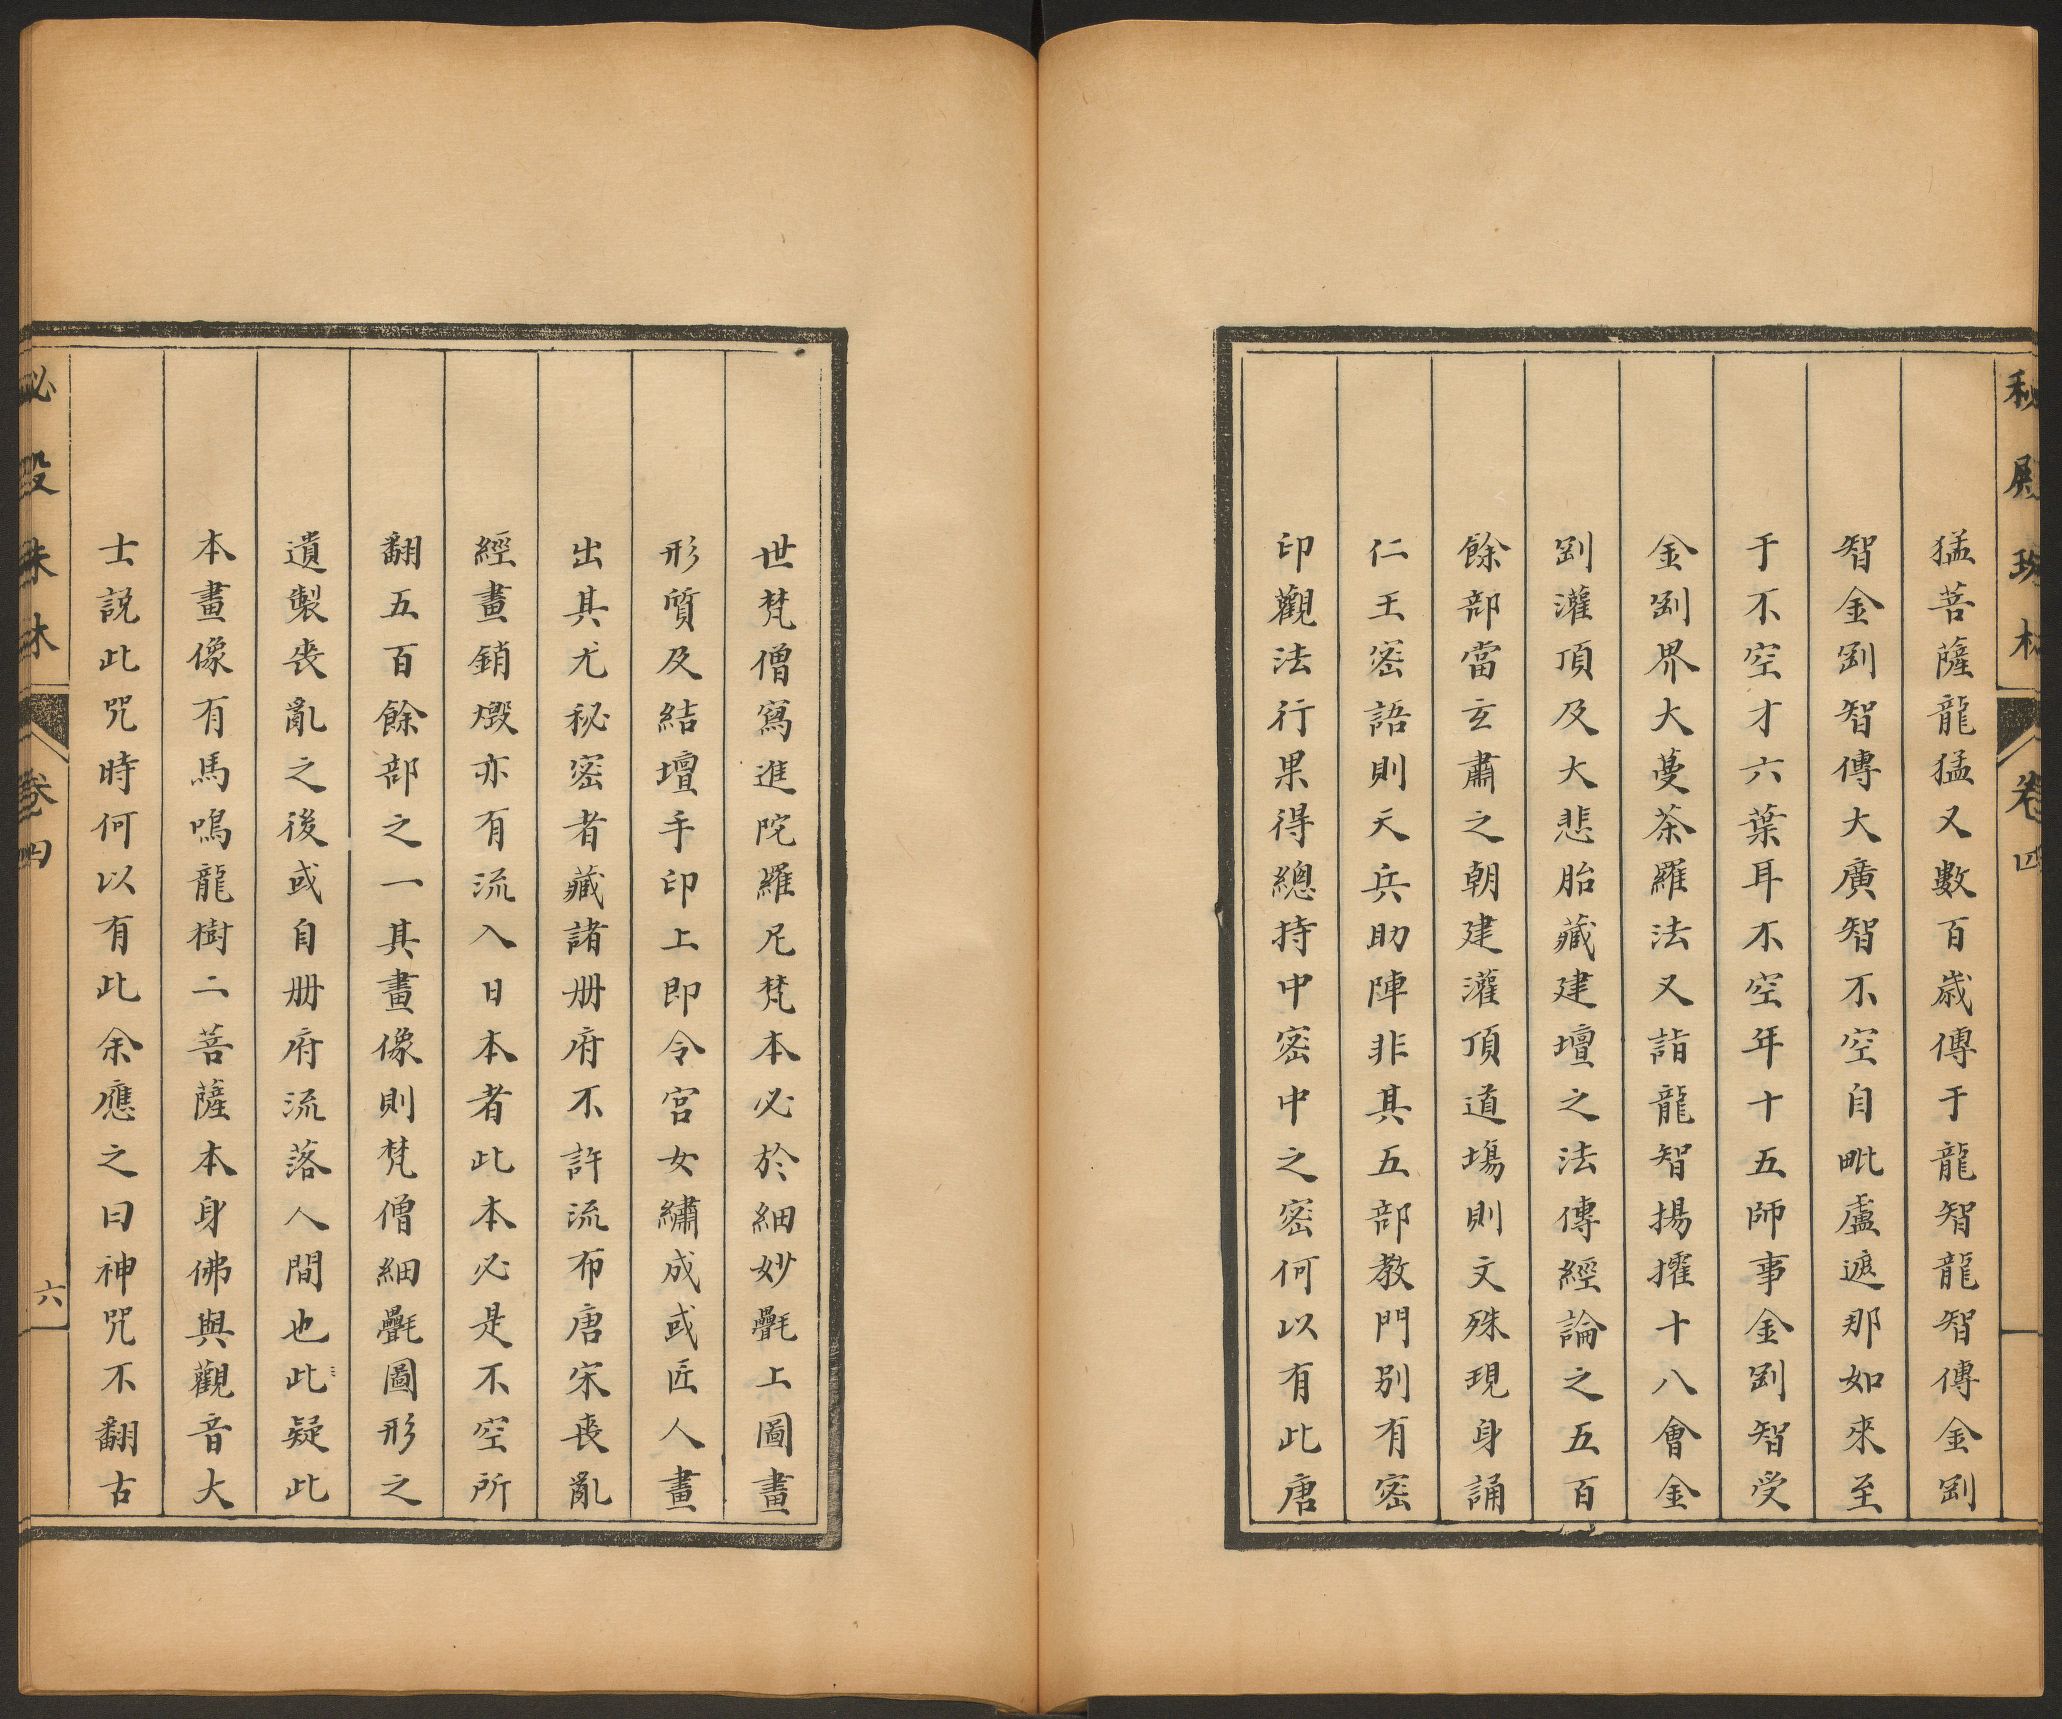 秘殿珠林 卷四
猛菩薩龍猛又數百歲傳于龍智龍智傳金剛
智金剛智傳大廣智不空自毗盧遮那如來至
于不空才六葉耳不空年十五師事金剛智受
金剛界大蔓荼羅法又詣龍智揚擢十八會金
剛灌頂及大悲胎藏建壇之法傳經論之五百
餘部當玄肅之朝建灌頂道場則文殊現身誦
仁王密語則天兵助陣非其五部教門別有密
印觀法行果得總持中密中之密何以有此唐
世梵僧寫進陀羅尼梵本必於細妙㲲上圖畫
形質及結壇手印上即令宮女繡成或匠人畫
出其尤秘密者藏諸册府不許流布唐宋喪亂
經畫銷燬亦有流入日本者此本必是不空所
翻五百餘部之一其畫像則梵僧細㲲圖形之
遺製喪亂之後或自册府流落人間也此疑此
本畫像有馬鳴龍樹二菩薩本身佛與觀音大
士說此咒時何以有此余應之曰神咒不翻古
秘殿珠林 卷四 六